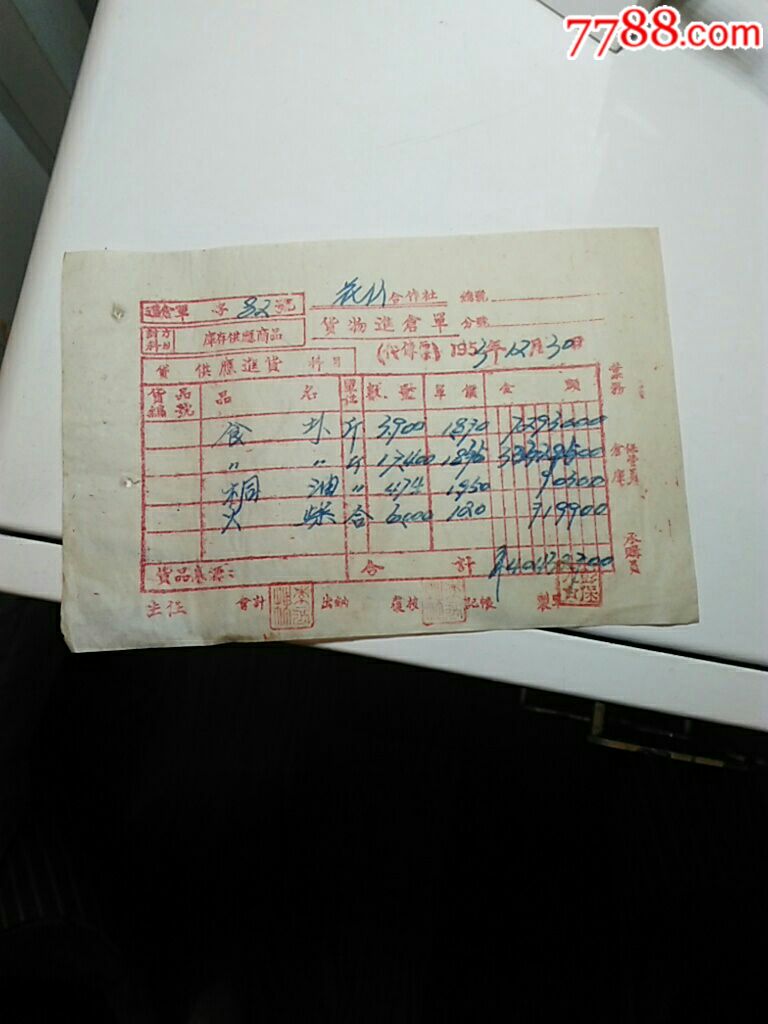 7788.com
進倉單 字 32 號
花竹合作社 總號
對方科目 庫存供應商品
貨物進倉單 分號
貨 供應進貨 科目
1953年12月30日
業務
貨品編號 品名 單位 數量 單價 金額
食 斤 3900 1870 7293000
〃 〃 斤 17400
桐 油 〃 474 1950 90300
火 柴 合 6000 120 719900
倉庫 保管員
承購員
貨品來源: 合計
主任 會計 出納 覆核 記帳 製單